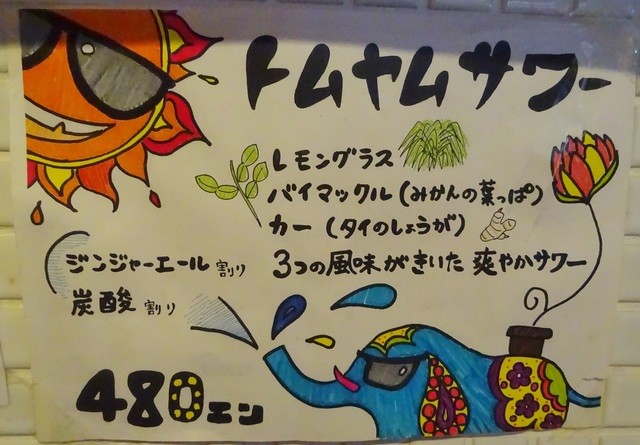 トムヤムサワー
レモングラス
バイマックル(みかんの葉っぱ)
カー (タイのしょうが)
3つの風味がきいた 爽やかサワー
ジンジャーエール 割り
炭酸 割り
480エン